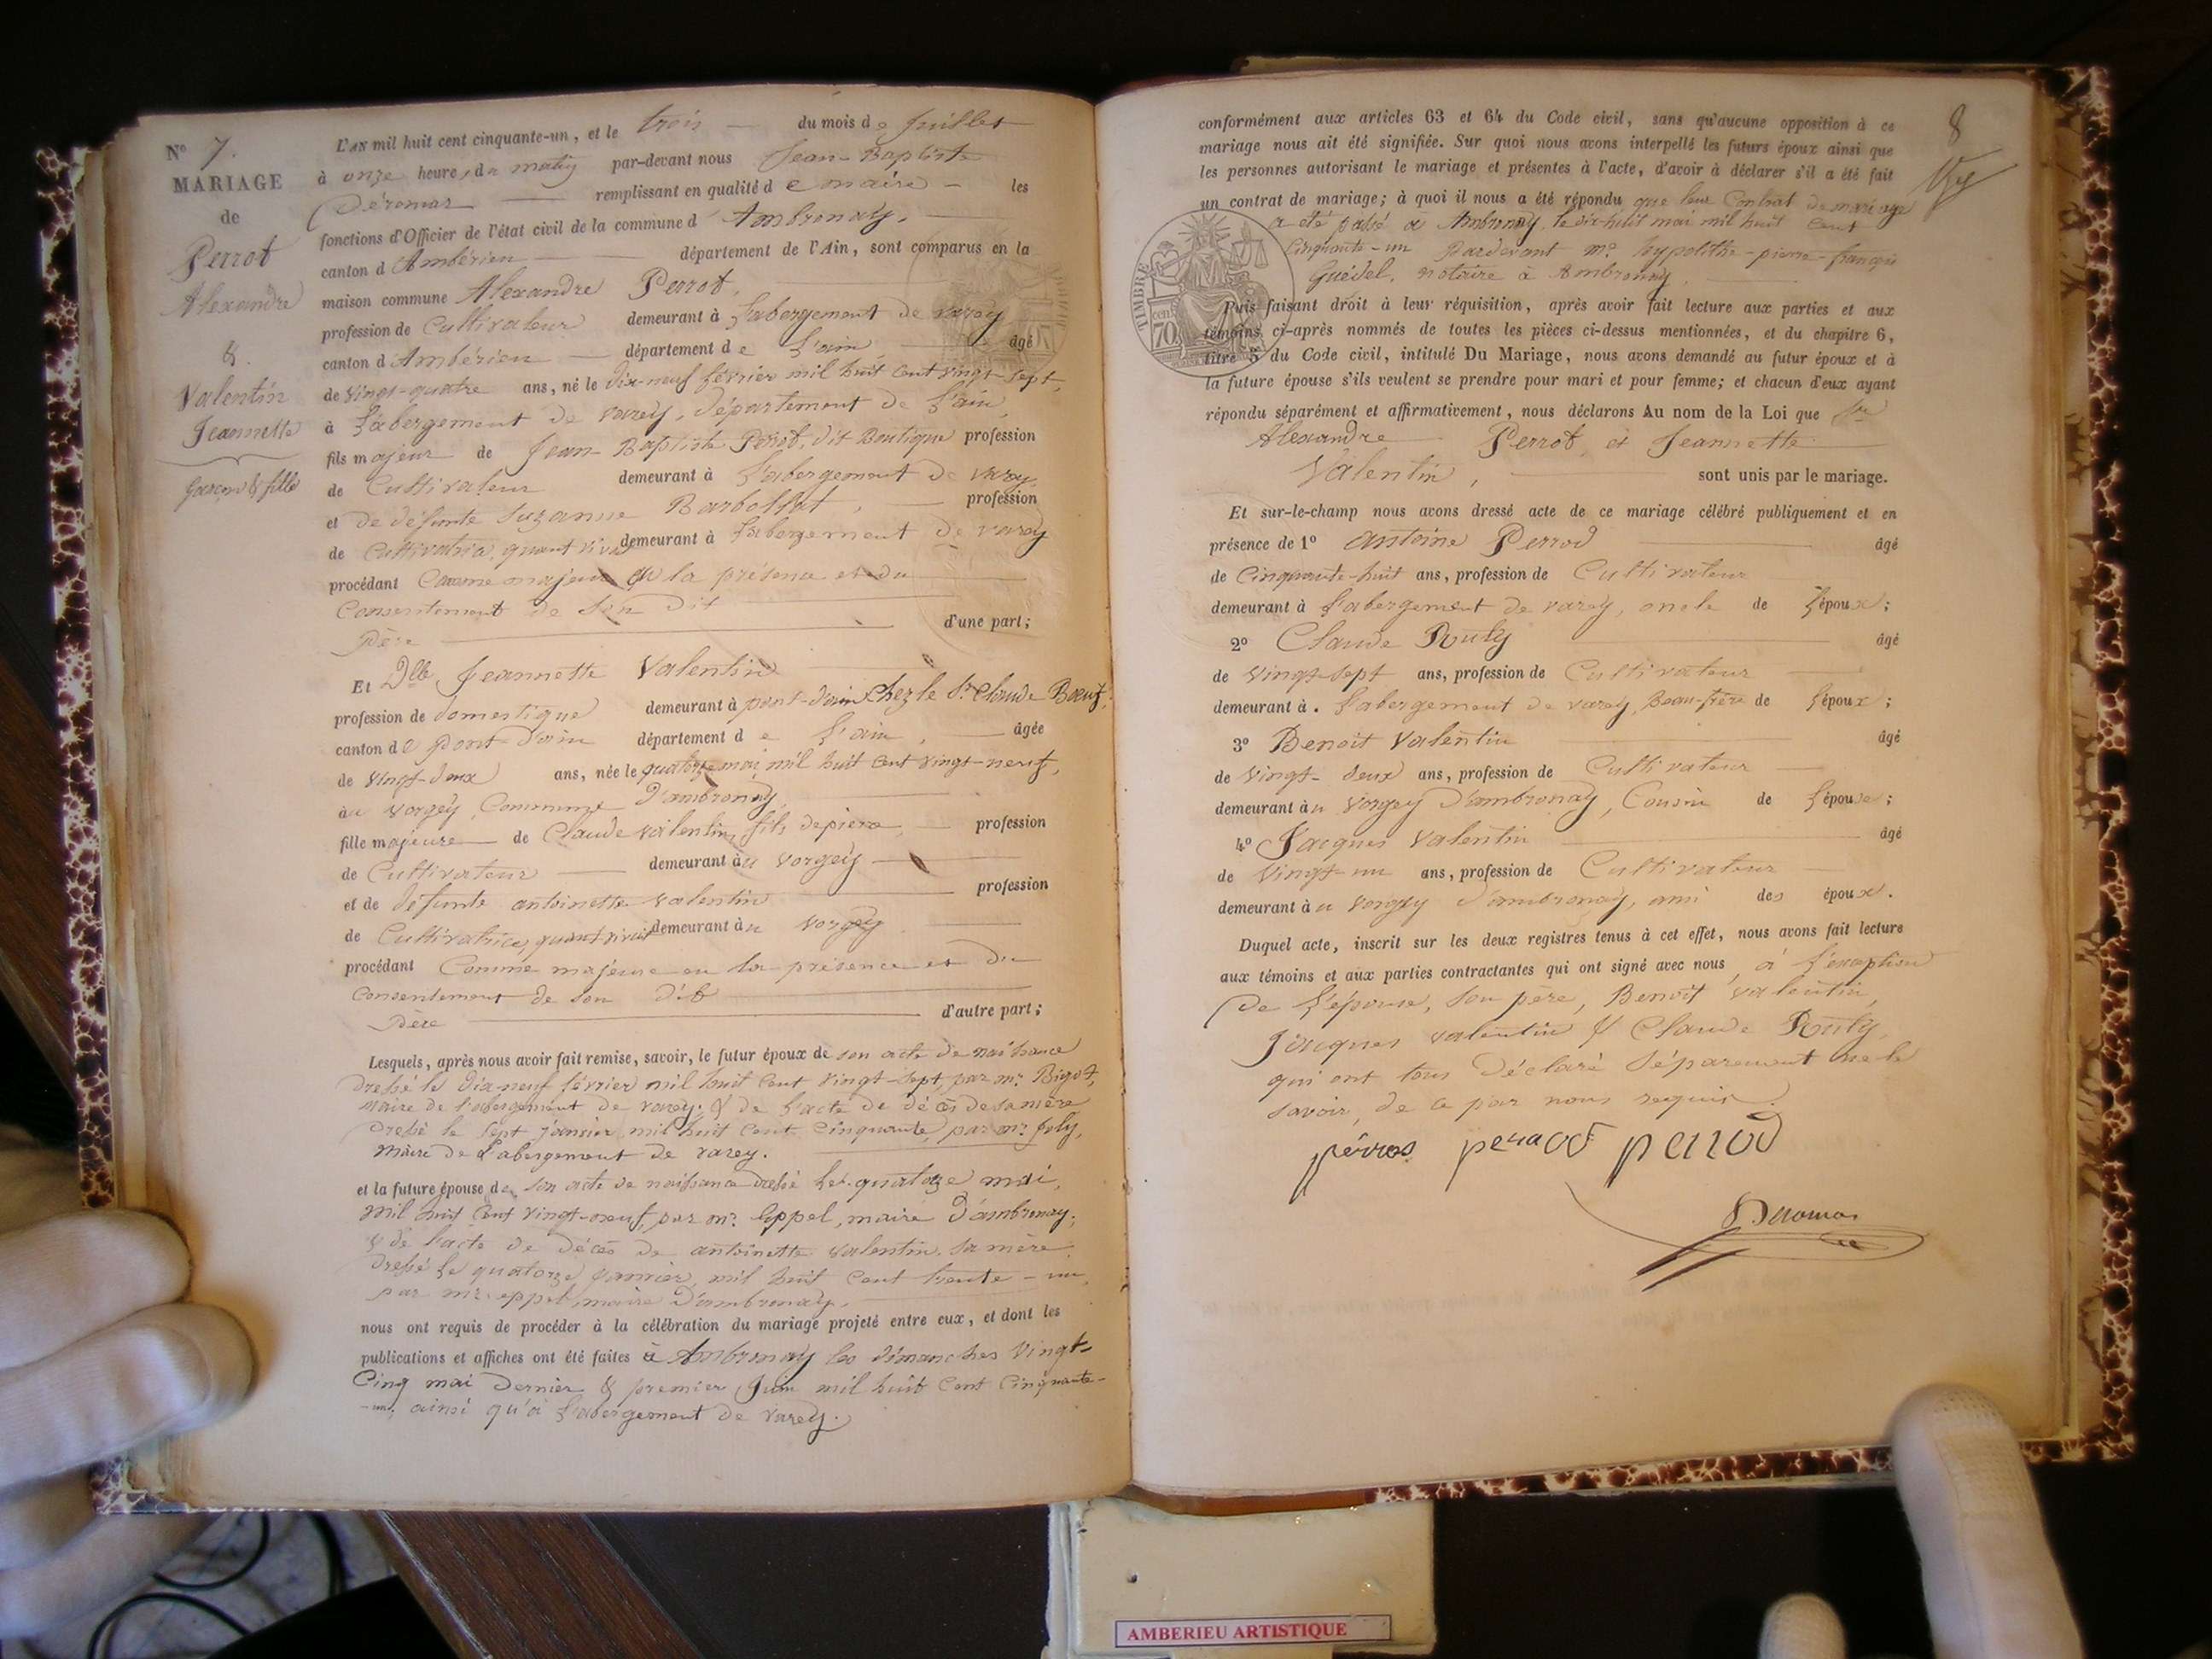 N° 7.
MARIAGE
de
Perrot
Alexandre
&
Valentin
Jeannette
garçon & fille
L'AN mil huit cent cinquante-un, et le trois du mois de Juillet
à onze heures du matin par-devant nous Jean-Baptiste
Déromas remplissant en qualité de maire les
fonctions d'Officier de l'état civil de la commune d'Ambronay,
canton d'Ambérieu département de l'Ain, sont comparus en la
maison commune Alexandre Perrot,
profession de Cultivateur demeurant à L'abergement de varey
canton d'Ambérieu département de L'ain, âgé
de vingt-quatre ans, né le Dix-neuf février mil huit cent vingt-sept,
à L'abergement de varey, département de L'ain,
fils majeur de Jean-Baptiste Perrot, dit Boutique profession
de Cultivateur demeurant à L'abergement de varey
et de défunte Suzanne profession
de Cultivatrice, quant vivait demeurant à L'abergement de varey
procédant Comme majeur en la présence et du
Consentement de son dit
Père d'une part;
Et Dlle Jeannette Valentin
profession de domestique demeurant à pont-d'ain chez le Sr. Claude Bœuf,
canton de Pont-d'ain département de L'ain, âgée
de vingt-deux ans, née le quatorze mai mil huit cent vingt-neuf,
au vorgey, Commune D'ambronay,
fille majeure de Claude valentin, fils de pierre, profession
de Cultivateur demeurant au vorgey
et de défunte antoinette valentin profession
de Cultivatrice, quant vivait demeurant au vorgey
procédant Comme majeure en la présence et du
Consentement de son dit
Père d'autre part;
Lesquels, après nous avoir fait remise, savoir, le futur époux de son acte de naissance
dressé le dix-neuf février mil huit cent vingt-sept, par mr. Bigot,
maire de l'abergement de varey; & de l'acte de décès de sa mère
dressé le sept janvier mil huit cent cinquante, par mr. Joly,
Maire de L'abergement de varey.
et la future épouse de son acte de naissance dressé le quatorze mai,
mil huit cent vingt-neuf, par mr. eppel, maire D'ambronay;
& de l'acte de décès de antoinette valentin, sa mère,
dressé le quatorze janvier, mil huit cent trente-un,
par mr. eppel, maire D'ambronay.
nous ont requis de procéder à la célébration du mariage projeté entre eux, et dont les
publications et affiches ont été faites à Ambronay les dimanches vingt-
Cinq mai dernier & premier Juin mil huit Cent Cinquante-
-un, ainsi qu'à L'abergement de varey.
8
conformément aux articles 63 et 64 du Code civil, sans qu'aucune opposition à ce
mariage nous ait été signifiée. Sur quoi nous avons interpellé les futurs époux ainsi que
les personnes autorisant le mariage et présentes à l'acte, d'avoir à déclarer s'il a été fait
un contrat de mariage; à quoi il nous a été répondu que leur Contrat de mariage
a été passé à Ambronay, le dix-huit mai mil huit Cent
Cinquante-un Pardevant me. hypolithe-pierre-françois
Guédel, notaire à Ambronay,
TIMBRE
70 cent
Puis faisant droit à leur réquisition, après avoir fait lecture aux parties et aux
témoins ci-après nommés de toutes les pièces ci-dessus mentionnées, et du chapitre 6,
titre 5 du Code civil, intitulé Du Mariage, nous avons demandé au futur époux et à
la future épouse s'ils veulent se prendre pour mari et pour femme; et chacun d'eux ayant
répondu séparément et affirmativement, nous déclarons Au nom de la Loi que Sr
Alexandre Perrot, et Jeannette
Valentin, sont unis par le mariage.
Et sur-le-champ nous avons dressé acte de ce mariage célébré publiquement et en
présence de 1° antoine Perrod âgé
de Cinquante-huit ans, profession de Cultivateur
demeurant à L'abergement de varey, oncle de L'époux;
2° Claude Ruty âgé
de vingt-sept ans, profession de Cultivateur
demeurant à L'abergement de varey, Beau-frère de L'époux;
3° Benoit Valentin âgé
de vingt-deux ans, profession de Cultivateur
demeurant au vorgey D'ambronay, Cousin de L'épouse;
4° Jacques Valentin âgé
de vingt-un ans, profession de Cultivateur
demeurant au vorgey d'ambronay, ami des époux.
Duquel acte, inscrit sur les deux registres tenus à cet effet, nous avons fait lecture
aux témoins et aux parties contractantes qui ont signé avec nous, à L'exception
De L'épouse, son père, Benoit valentin,
Jacques valentin & Claude Ruty,
qui ont tous déclaré séparément ne le
savoir, de ce par nous requis.
perrod
Déromas
AMBERIEU ARTISTIQUE